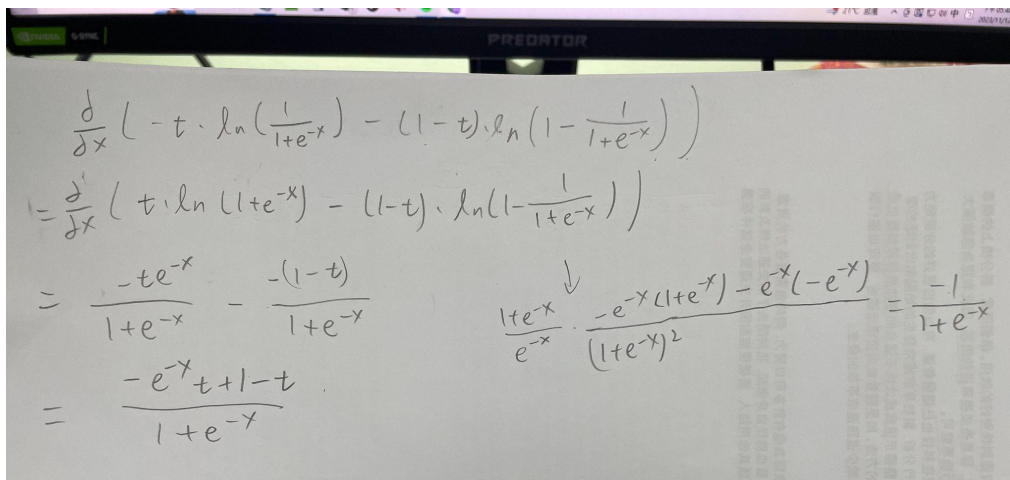 NVIDIA G-SYNC
PREDATOR
∂/∂x ( -t · ln(1/(1+e^-x)) - (1-t)·ln(1 - 1/(1+e^-x)) )
= ∂/∂x ( t·ln(1+e^-x) - (1-t)·ln(1- 1/(1+e^-x)) )
= -te^-x/(1+e^-x) - -(1-t)/(1+e^-x)
↓
(1+e^-x)/e^-x · (-e^-x(1+e^-x) - e^-x(-e^-x))/(1+e^-x)^2 = -1/(1+e^-x)
= (-e^-x t+1-t)/(1+e^-x)